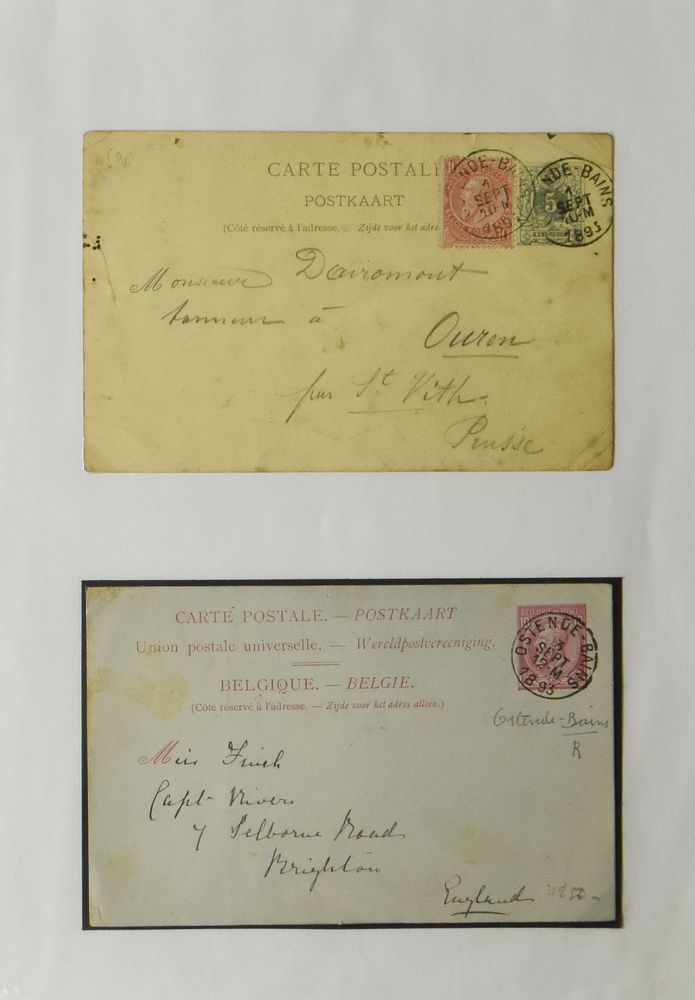 CARTE POSTALE
POSTKAART
(Côté réservé à l'adresse. Zijde voor het adre
NDE-BAINS
1
SEPT
10-M
1893
5
Monsieur Dairomont
tanneur à
Ouren
par St Vith.
Prusse
CARTE POSTALE. — POSTKAART
Union postale universelle. — Wereldpostvereeniging.
BELGIQUE. — BELGIE.
(Côté réservé à l'adresse. — Zijde voor het adres alleen.)
10
OSTENDE-BAINS
SEPT
12-M
1893
Ostende-Bains
R
Miss Finch
Capt Rivers
7 Selborne Road
Brighton
England